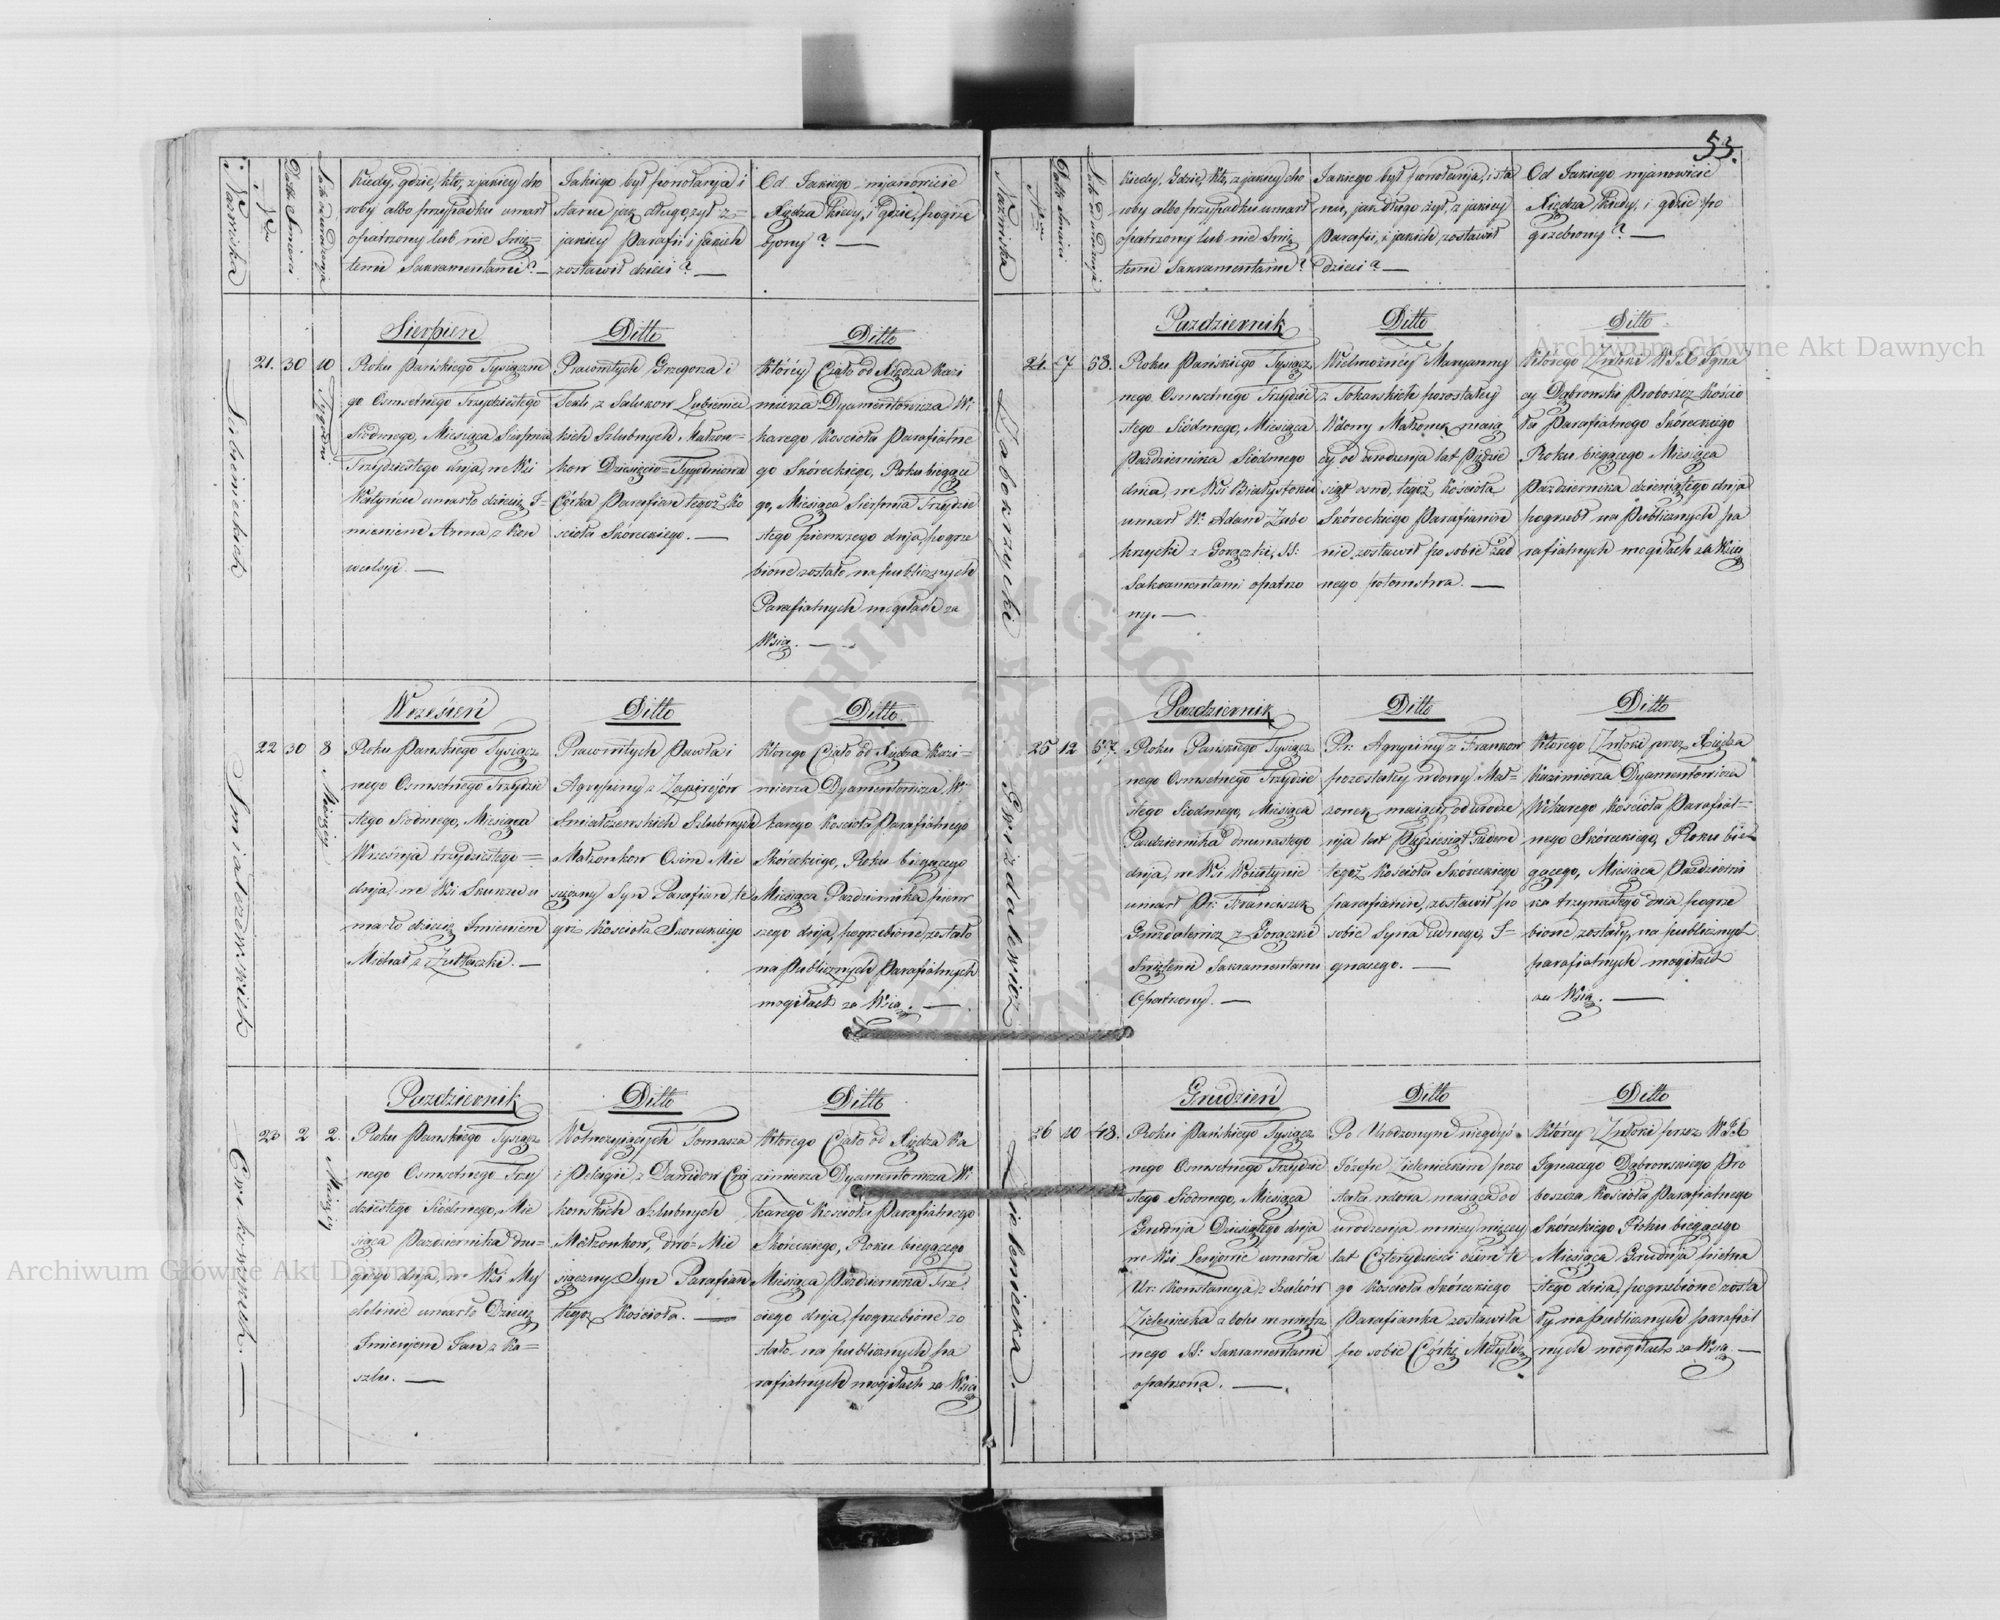 53.
Nazwiska
Nro
Data Śmierci
Lata od urodzenia
Kiedy, gdzie, kto, z jakiey cho
roby albo przypadku umarł
opatrzony lub nie Świę=
temi Sakramentami? —
Jakiego był powołania i
stanu jak długo żył z=
jakiey Parafii i jakich
zostawił dzieci? —
Od Jakiego mjanowicie
Xiędza kiedy, i gdzie, pogrze
bjony? —
Sierpień
Ditto
Ditto
21.
30
10
Tygodni
Roku Pańskiego Tysiączne
go Osmsetnego Trzydziestego
Siódmego, Miesiąca Sierpnia
Trzydziestego dnja, we Wsi
umarło dziecię I=
mieniem Anna z Kon
wulsyi. —
Pracowitych Grzegorza i
Tekli z Salukow Lubieniec
kich Szlubnych Małżon=
kow Dziesięcio=Tygodniowa
Córka Parafian tegoż Ko
scioła Skóreckiego. —
Któréy Ciało od Xiędza Kazi
mierza Dyamentowicza Wi
karego Kościoła Parafialne
go Skóreckiego, Roku bieżące
go, Miesiąca Sierpnia Trzydzie
stego pierwszego dnja, pogrze
bione zostało na publicznych
Parafialnych mogiłach za
Wsią. —
Wrzesień
Ditto
Ditto
22
30
8
Miesięcy
Roku Pańskiego Tysiącz
nego Osmsetnego Trzydzie
stego Siódmego, Miesiąca
Wrześnja trzydziestego =
dnja, we Wsi Skurzec u
marło dziecię Imieniem
Michał z —
Pracowitych Pawła i
Agryppiny z
Smiałczewskich Szlubnych
Małżonkow Osim Mie
sięczny Syn Parafian, te
goż Kościoła Skoreckiego
Którego Ciało od Xiędza Kazi=
mierza Dyamentowicza, Wi
karego Kościoła Parafialnego
Skóreckiego, Roku bieżącego
Miesiąca Pazdziernika pierw
szego dnja, pogrzebione, zostało
na Publicznych Parafialnych
mogiłach za Wsią. —
Pazdziernik
Ditto
Ditto
23
2
2.
Miesięcy
Roku Pańskiego Tysiącz
nego Osmsetnego Trzy
dziestego Siódmego, Mie
siąca Pazdziernika dru=
giego dnja, we Wsi My
umarło Dziecię
Imieniem Jan z Ka=
szlu. —
Wolnożyiących Tomasza
i Pelagii z Dawidow
Szlubnych
Małżonkow, dwó=Mie
sięczny Syn Parafian
tegoż Kościoła. —
Którego Ciało od Xiędza Ka
zimierza Dyamentowicza Wi
karego Kościoła Parafialnego
Skóreckiego, Roku bieżącego
Miesiąca Pazdziernika Trze
ciego dnja, pogrzebione zo
stało na publicznych pa
rafialnych mogiłach za Wsią
Nazwiska
Nro
Data śmierci
Lata od urodzenia
Kiedy, Gdzie, Kto, z jakiey cho
roby albo przypadku umarł
opatrzony lub nie Świę
temi Sakramentami?
Jakiego był powołanja, i sta
nu, jak długo żył, z jakiey
Parafii, i jakich zostawił
dzieci? —
Od Jakiego mjanowicie
Xiędza Kiedy, i gdzie po
grzebiony? —
Pazdziernik
Ditto
Ditto
24.
7
58.
Roku Pańskiego Tysiącz
nego Osmsetnego Trzydzie
stego Siódmego, Miesiąca
Pazdziernika Siódmego
dnia, we Wsi Białystoku
umarł W: Adam Zabo
krzycki z Gorączki, SS:
Sakramentami opatrzo
ny. —
Wielmożnéy Maryanny
z Tokarskich pozostałey
Wdowy Małżonek maią
cy od urodzenja lat Pięćdzie
siąt osm, tegoż Kościoła
Skóreckiego Parafianin
nie zostawił po sobie żad
nego potomstwa. —
Którego Zwłoki W: J: X Igna
cy Dąbrowski Proboszcz Kościo
ła Parafialnego Skóreckiego
Roku bieżącego Miesiąca
Pazdziernika dziewiątego dnja
pogrzebł na Publicznych pa
rafialnych mogiłach za Wsią
Pazdziernik
Ditto
Ditto
25
12
57.
Roku Pańskiego Tysiącz
nego Osmsetnego Trzydzie
stego Siódmego, Miesiąca
Pazdziernika dwunastego
dnja, we Wsi
umarł Pr: Franciszek
Gwizdalewicz z Gorączki
Świętemi Sakramentami
Opatrzony. —
Pr: Agrypiny z Frankow
pozostałey wdowy Mał=
zonek maiący od urodze
nja lat Pięćdziesiąt Siedem
tegoż Kościoła Skóreckiego
parafianin, zostawił po
sobie Syna iednego, I=
gnacego. —
Którego Zwłoki przez Xiędza
Kazimierza Dyamentowicza
Wikarego Kościoła Parafial=
nego Skóreckiego, Roku bie=
żącego, Miesiąca Pazdzierni
ka trzynastego dnia pogrze
bione zostały, na publicznych
parafialnych mogiłach
za Wsią. —
Grudzień
Ditto
Ditto
26
10
48.
Zieleniecka.
Roku Pańskiego Tysiącz
nego Osmsetnego Trzydzie
stego Siódmego, Miesiąca
Grudnja Dziesiątego dnja
we Wsi umarła
Ur: Konstancya z
Zieleniecka z bolu wewnętrz
nego SS: Sakramentami
opatrzona. —
Po Urodzonym niegdyś
Józefie Zielenieckim pozo
stała wdowa maiąca od
urodzenja mniey więcey
lat Czterydzieści ośm te
go Kościoła Skóreckiego
Parafianka zostawiła
po sobie Córkę
Któréy Zwłoki przez W:J:X
Ignacego Dąbrowskiego Pro
boszcza Kościoła Parafialnego
Skóreckiego Roku bieżącego
Miesiąca Grudnja pietna
stego dnja, pogrzebione zosta
ły na publicznych parafial
nych mogiłach za Wsią —
Archiwum Główne Akt Dawnych
Archiwum Główne Akt Dawnych